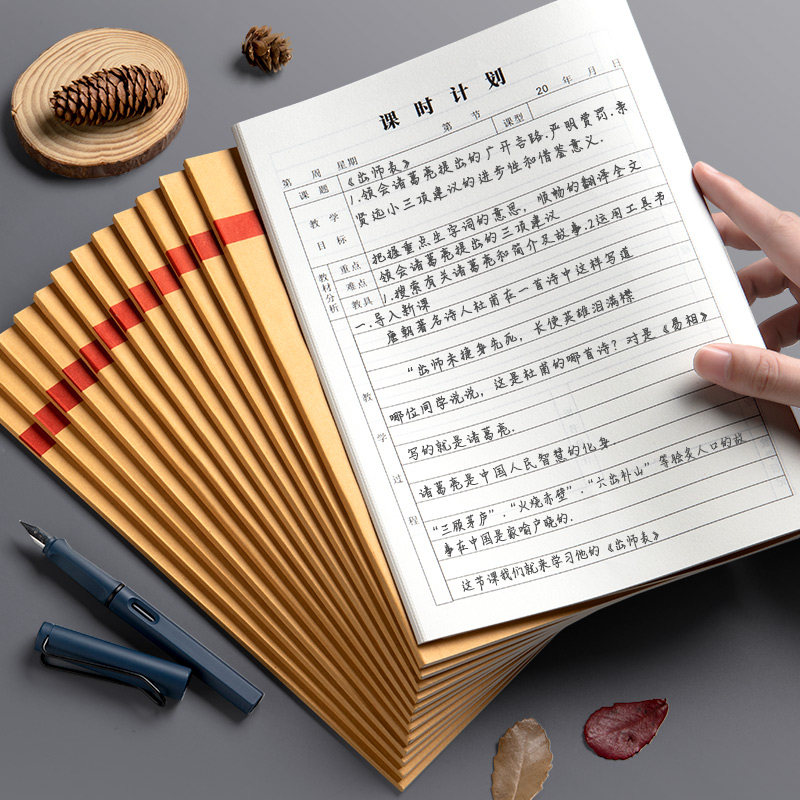 课时计划
20 年 月 日
第 周 星期 第 节 课型
课题 《出师表》
教学目标 1.领会诸葛亮提出的广开言路.严明赏罚.亲
贤远小三项建议的进步性和借鉴意义.
教材分析 重点 把握重点生字词的意思，顺畅的翻译全文
难点 领会诸葛亮提出的三项建议
教具 1.搜索有关诸葛亮和简介及故事.2运用工具书
教学过程
一.导入新课
唐朝著名诗人杜甫在一首诗中这样写道
“出师未捷身先死，长使英雄泪满襟
哪位同学说说，这是杜甫的哪首诗？对是《蜀相》
写的就是诸葛亮.
诸葛亮是中国人民智慧的化身
“三顾茅庐”.“火烧赤壁”.“六出祁山”等脍炙人口的故
事在中国是家喻户晓的.
这节课我们就来学习他的《出师表》